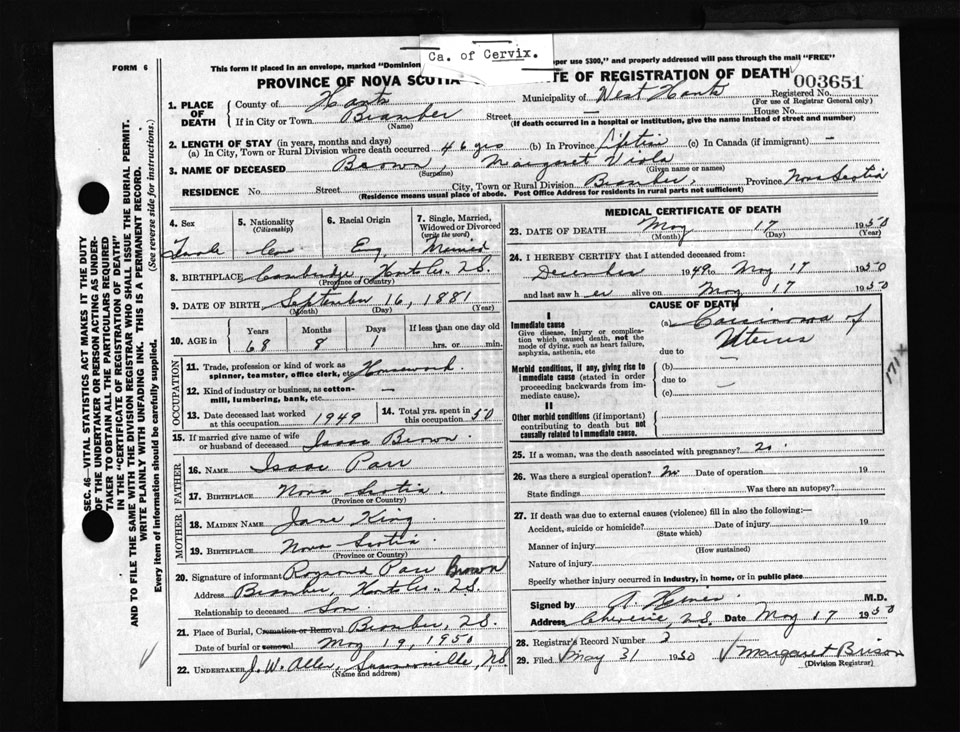 Ca. of Cervix.
FORM 6
This form if placed in an envelope, marked "Dominion per use $300," and properly addressed will pass through the mail "FREE"
PROVINCE OF NOVA SCOTIA TE OF REGISTRATION OF DEATH 003651
1. PLACE OF DEATH
County of Hants Municipality of West Hants Registered No.
(For use of Registrar General only)
If in City or Town Bramber Street House No.
(Name) (If death occurred in a hospital or institution, give the name instead of street and number)
2. LENGTH OF STAY (in years, months and days)
(a) In City, Town or Rural Division where death occurred 46 yrs (b) In Province Lifetime (c) In Canada (if immigrant) —
3. NAME OF DECEASED Brown, Margaret Viola
(Surname) (Given name or names)
RESIDENCE No. Street City, Town or Rural Division Bramber, Province Nova Scotia
(Residence means usual place of abode. Post Office Address for residents in rural parts not sufficient)
4. Sex 5. Nationality (Citizenship) 6. Racial Origin 7. Single, Married, Widowed or Divorced (write the word)
Can Eng Married
8. BIRTHPLACE Cambridge, Hants Co. N.S.
(Province or Country)
9. DATE OF BIRTH September 16, 1881
(Month) (Day) (Year)
10. AGE in Years Months Days If less than one day old
68 8 1 hrs. or min.
OCCUPATION
11. Trade, profession or kind of work as spinner, teamster, office clerk, etc. Housework.
12. Kind of industry or business, as cotton-mill, lumbering, bank, etc. —
13. Date deceased last worked at this occupation 1949 14. Total yrs. spent in this occupation 50
15. If married give name of wife or husband of deceased Isaac Brown.
FATHER
16. NAME Isaac Parr
17. BIRTHPLACE Nova Scotia
(Province or Country)
MOTHER
18. MAIDEN NAME Jane King
19. BIRTHPLACE Nova Scotia.
(Province or Country)
20. Signature of informant Parr Brown
Address Bramber, Hants Co. N.S.
Relationship to deceased Son
21. Place of Burial, Cremation or Removal Bramber, N.S.
Date of burial or removal May 19, 1950
22. UNDERTAKER J. W. Allen, N.S.
(Name and address)
MEDICAL CERTIFICATE OF DEATH
23. DATE OF DEATH May 17 1950
(Month) (Day) (Year)
24. I HEREBY CERTIFY that I attended deceased from:
December 1949 to May 17 1950
and last saw h er alive on May 17 1950
CAUSE OF DEATH
I
Immediate cause (a) Carcinoma of Uterus
Give disease, injury or complication which caused death, not the mode of dying, such as heart failure, asphyxia, asthenia, etc due to
Morbid conditions, if any, giving rise to immediate cause (stated in order proceeding backwards from immediate cause).
(b) —
due to —
(c)
II
Other morbid conditions (if important) contributing to death but not causally related to immediate cause.
171X
25. If a woman, was the death associated with pregnancy? no
26. Was there a surgical operation? No. Date of operation 19
State findings Was there an autopsy?
27. If death was due to external causes (violence) fill in also the following:—
Accident, suicide or homicide? Date of injury 19
(State which)
Manner of injury
(How sustained)
Nature of injury
Specify whether injury occurred in industry, in home, or in public place
Signed by M.D.
Address Cheverie, N.S. Date May 17 1950
28. Registrar's Record Number
29. Filed May 31 1950 Margaret
(Division Registrar)
SEC. 46—VITAL STATISTICS ACT MAKES IT THE DUTY
OF THE UNDERTAKER OR PERSON ACTING AS UNDER-
TAKER TO OBTAIN ALL THE PARTICULARS REQUIRED
IN THE "CERTIFICATE OF REGISTRATION OF DEATH"
AND TO FILE THE SAME WITH THE DIVISION REGISTRAR WHO SHALL ISSUE THE BURIAL PERMIT.
WRITE PLAINLY WITH UNFADING INK. THIS IS A PERMANENT RECORD.
Every item of Information should be carefully supplied. (See reverse side for instructions.)